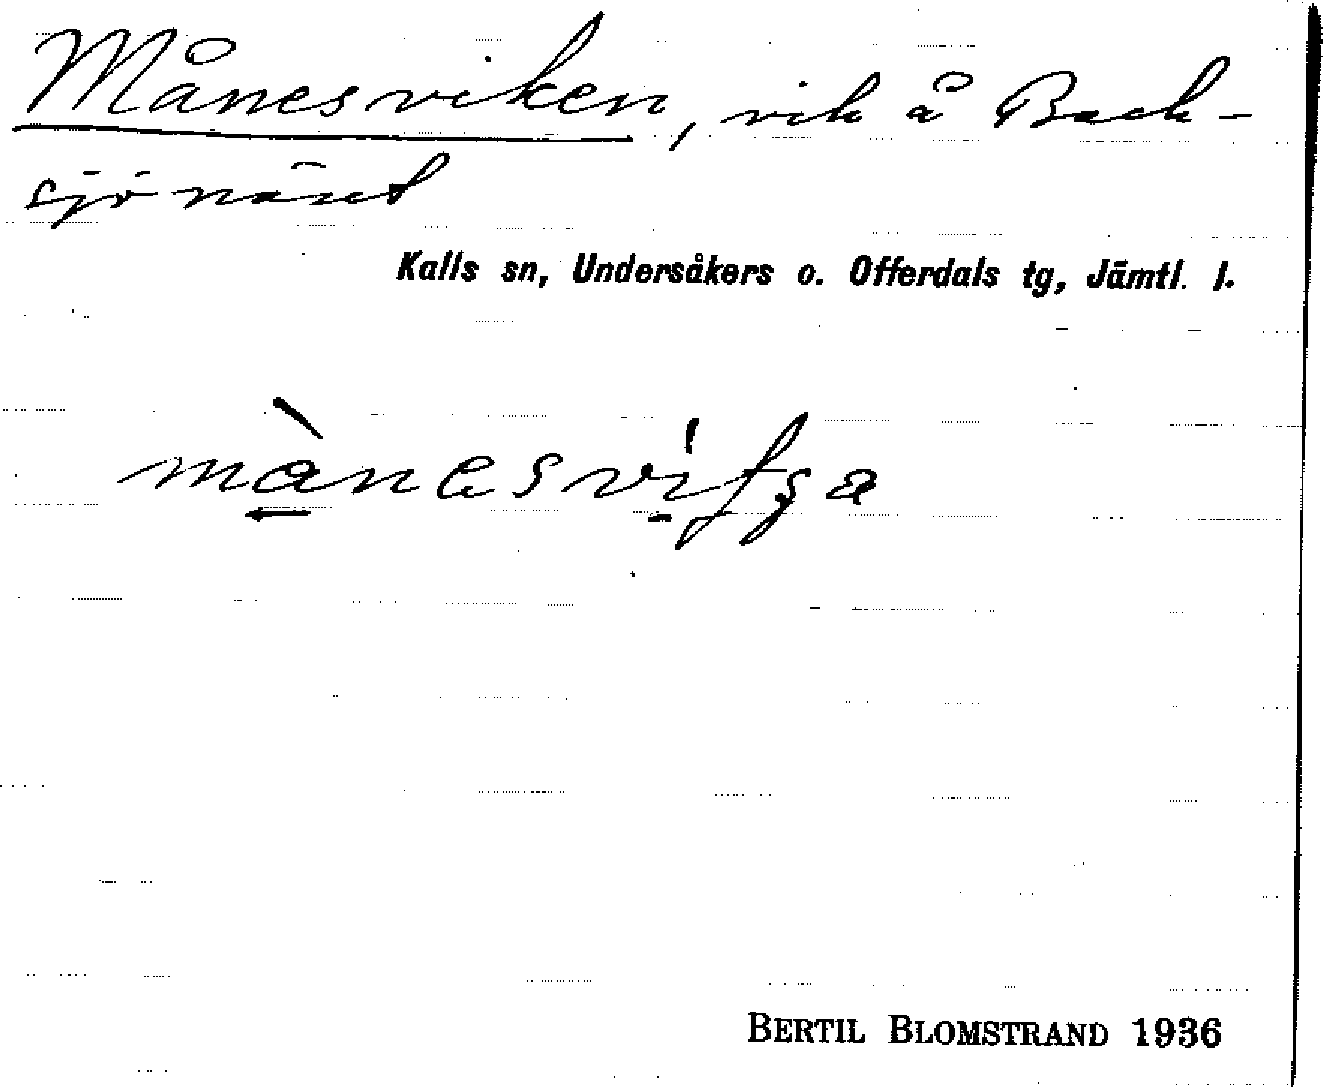 Månesviken, vik å Back-
sjönäset
Kalls sn, Undersåkers o. Offerdals tg, Jämtl. l.
BERTIL BLOMSTRAND 1936